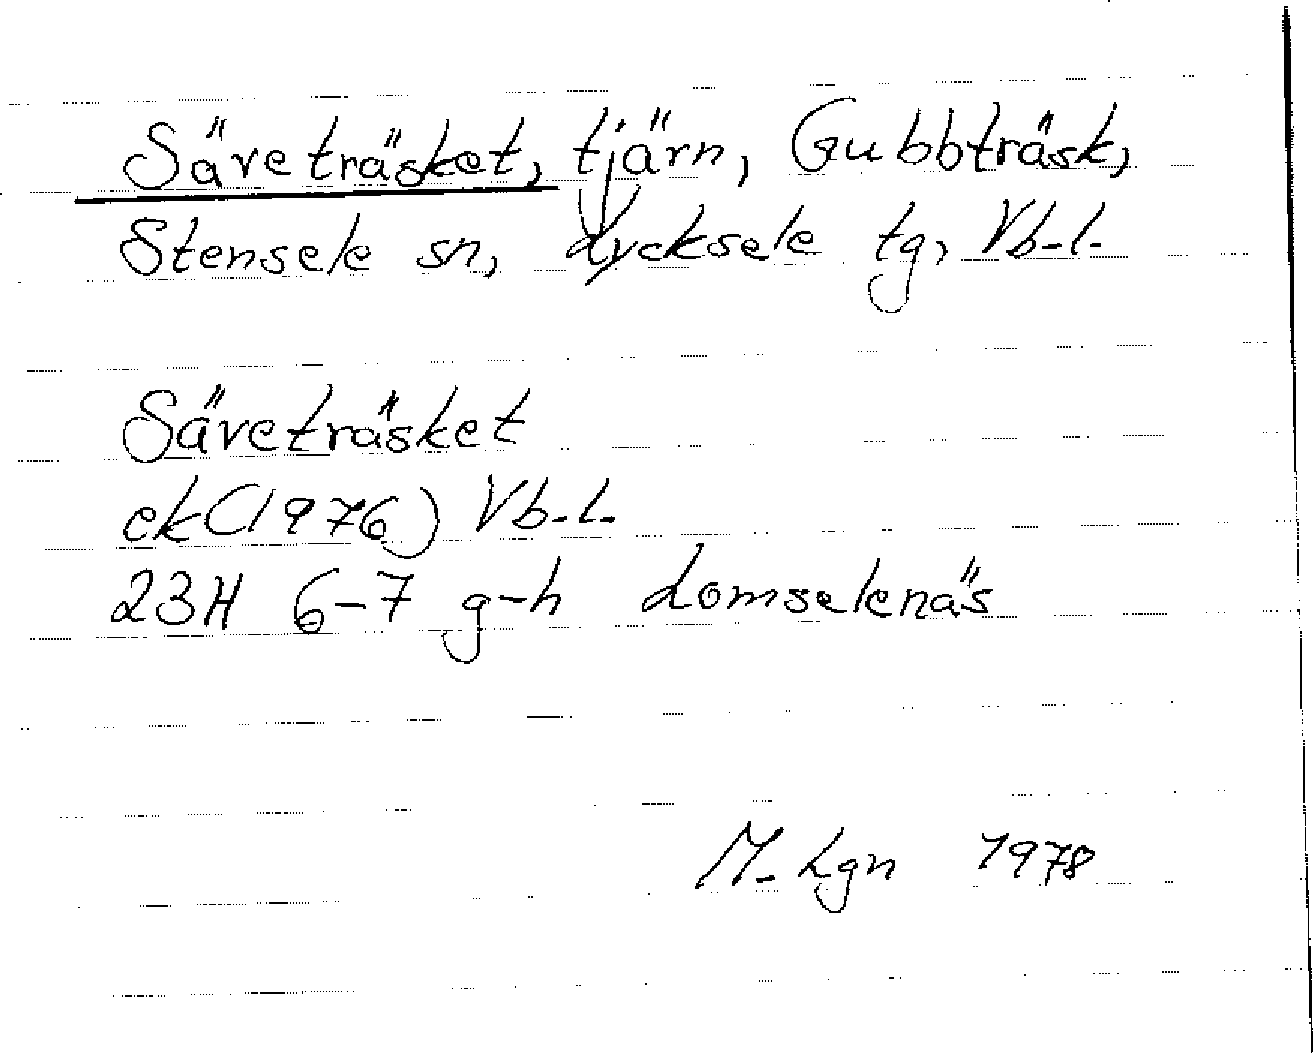 Säveträsket, tjärn, Gubbträsk,
Stensele sn, Lycksele tg, Vb-l.
Säveträsket
ek (1976) Vb-l.
23H 6-7 g-h Lomselenäs
M. Lgn 1978